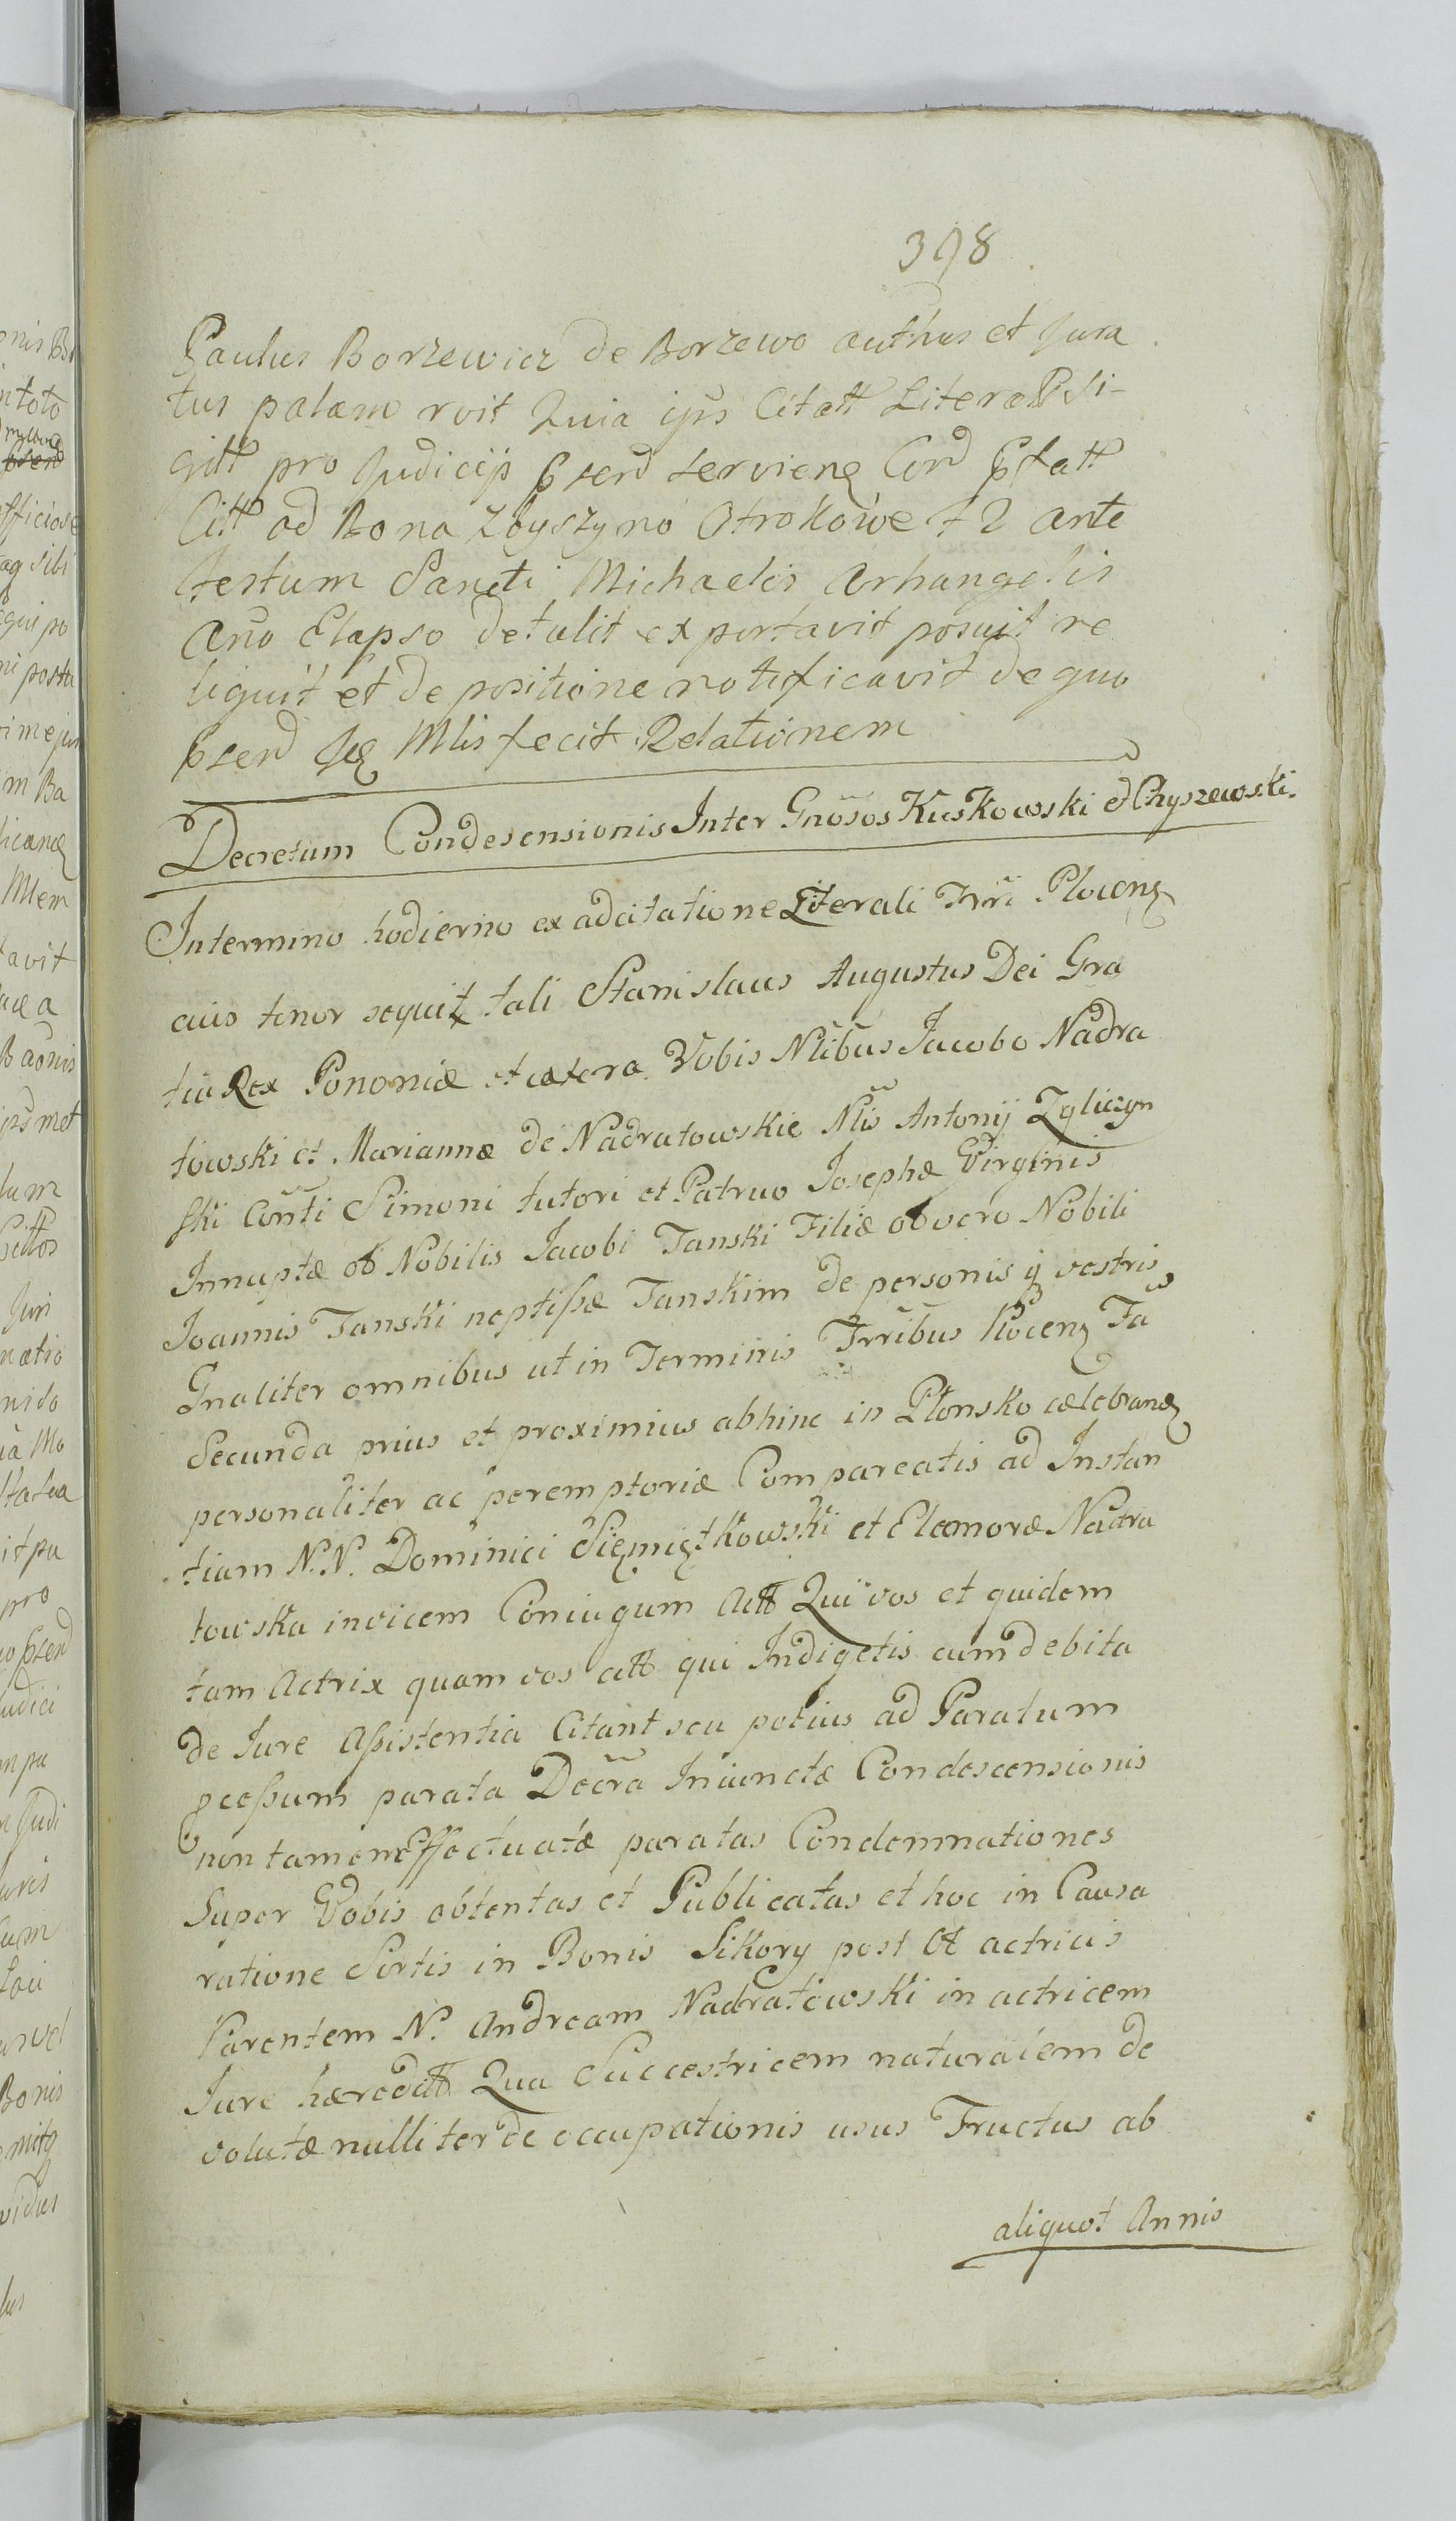 398
Paulus Borzewicz de Borzewo authus et Jura
tus palam rvit Quia ijs Citatt Literatt Si-
gitt pro Judicijs pserd servieng Cord pfatt
Citt ad Bona Zbyszyno Otrokowe f 2 ante
festum Sancti Michaelis Arhangelis
Ano Elapso detulit exportavit posuit re
liquit et de positione notificavit de quo
pserd Mlis fecit Relationem
Decretum Condesensionis Inter Gnosos Kuskowski et Chyszewski.
Intermino hodierno ex adcitatione Literali Trri Plocens
cuis tenor sequit tali Stanislaus Augustus Dei Gra
tia Rex Pononiæ et cætera Vobis Nlibus Jacobo Nadra
towski et Mariannæ de Nadratowskie Nlis Antonij Zgliczyn
ski Conti Simoni tutori et Patruo Josephæ Virginis
Innuptæ ob Nobilis Jacobi Tanski Filiæ ob vero Nobili
Joannis Tanski neptißæ Tanskim de personis q vestris
Gnaliter omnibus ut in Terminis Trribus Plocens Fa
Secunda prius et proximius abhinc in Płonsko cælebrans
personaliter ac peremptoriæ Compareatis ad Instan
tiam N.N. Dominici Siemiątkowski et Eleonoræ Nadra
towska invicem Coniugum Att Qui vos et quidem
tam Actrix quam vos att qui Indigetis cum debita
de Jure Aßistentia Citant seu potius ad Paratum
pceßum parata Decra Iniunctæ Condescensionis
non tamen Effectuatæ paratas Condemnationes
Super Vobis obtentas et Publicatas et hoc in Causa
ratione Sortis in Bonis Sikory post Ol actricis
Parentem N. Andream Nadratowski in actricem
Jure hæreditt Qua Succestricem naturalem de
volutæ nulliter de occupationis usus Fructus ab
aliquot Annis